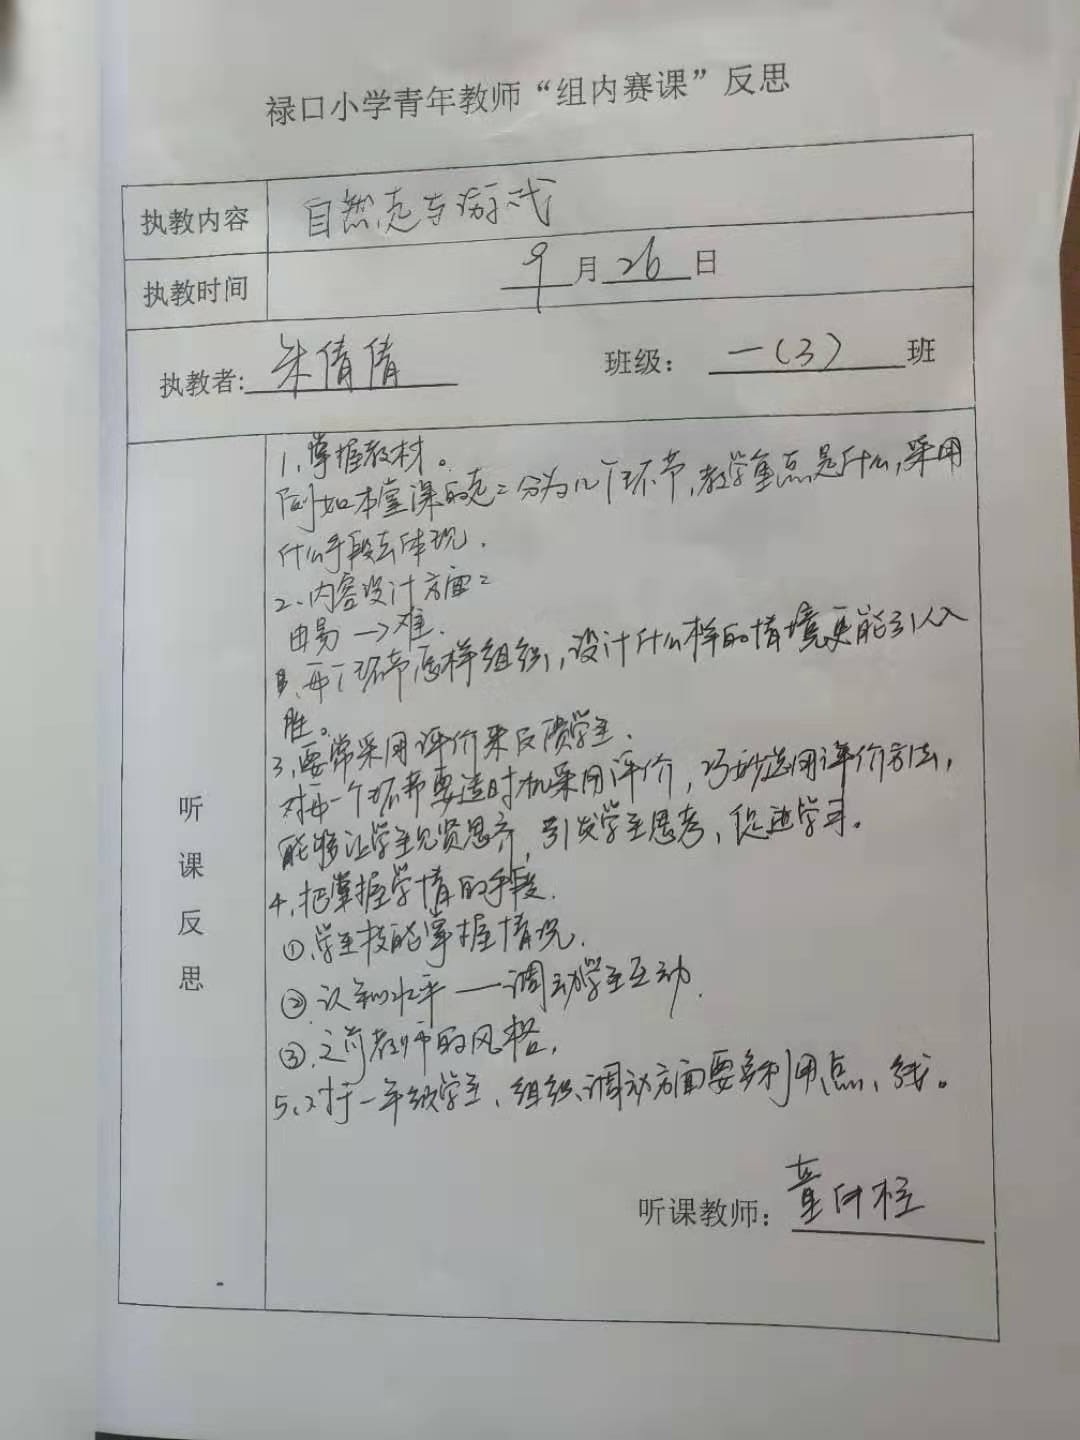 禄口小学青年教师“组内赛课”反思
执教内容 自然走与游戏
执教时间 9月26日
执教者: 朱倩倩 班级: 一(3) 班
听课反思
1、掌握教材。
例如本堂课的走:分为几个环节,教学重点是什么,采用
什么手段去体现.
2、内容设计方面:
由易→难.
每个环节怎样组织,设计什么样的情境更能引人入
胜。
3、要常采用评价来反馈学生.
对每一个环节要适时机采用评价,巧妙运用评价方法,
能够让学生见贤思齐,引发学生思考,促进学习。
4、把掌握学情的手段.
①.学生技能掌握情况.
②.认知水平——调动学生互动.
③.之前教师的风格.
5、对于一年级学生、组织、调动方面要多利用点、线。
听课教师:童